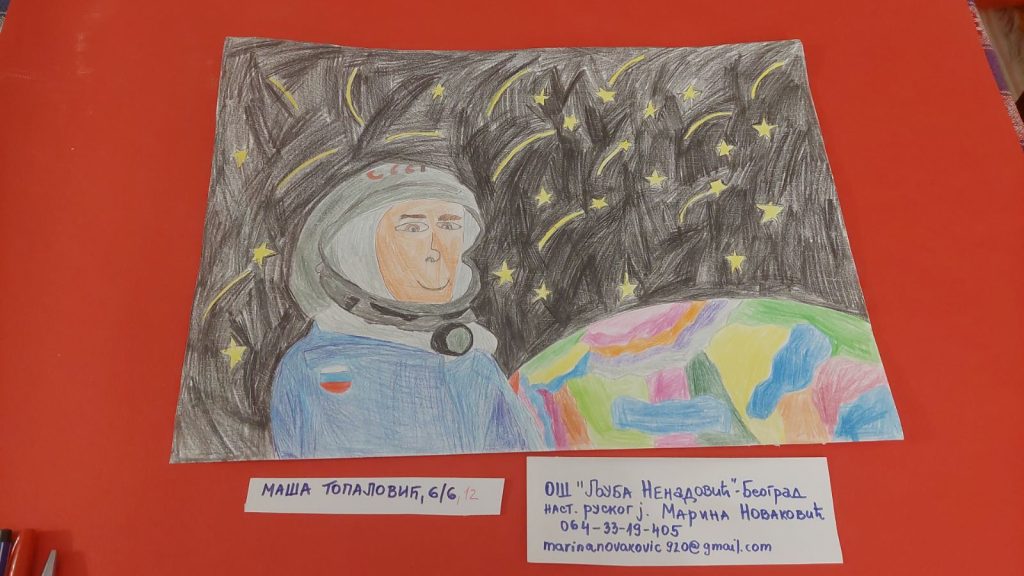 СССР
МАША ТОПАЛОВИЋ, 6/6, 12
ОШ "ЉУБА НЕНАДОВИЋ"-БЕОГРАД
НАСТ. РУСКОГ Ј. МАРИНА НОВАКОВИЋ
064-33-19-405
marina.novakovic920@gmail.com